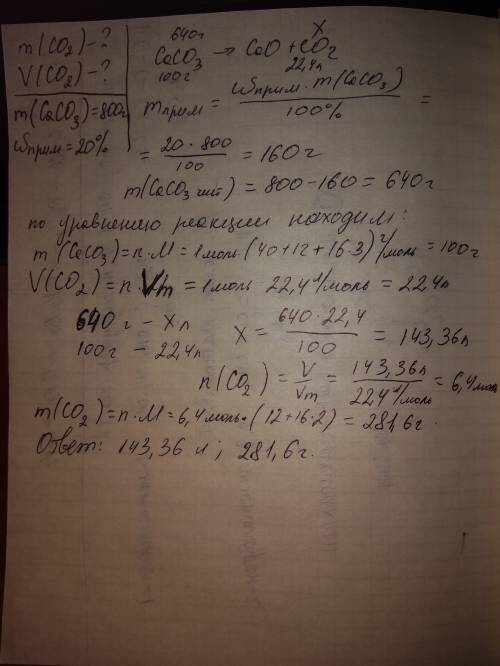 m(CO₂)-?
V(CO₂)-?
m(CaCO₃)=800г
ωприм=20%
640г X
CaCO₃ → CaO + CO₂
100г 22,4л
mприм = ωприм · m(CaCO₃) / 100% =
= 20 · 800 / 100 = 160г
m(CaCO₃ чист) = 800-160 = 640г
по уравнению реакции находим:
m(CaCO₃)=n·M=1моль·(40+12+16·3)г/моль=100г
V(CO₂)=n·Vm=1моль 22,4л/моль=22,4л
640г - Xл X = 640·22,4 / 100 = 143,36л
100г - 22,4л
n(CO₂) = V/Vm = 143,36л / 22,4л/моль = 6,4моль
m(CO₂)=n·M=6,4моль·(12+16·2)=281,6г.
Ответ: 143,36 л; 281,6г.